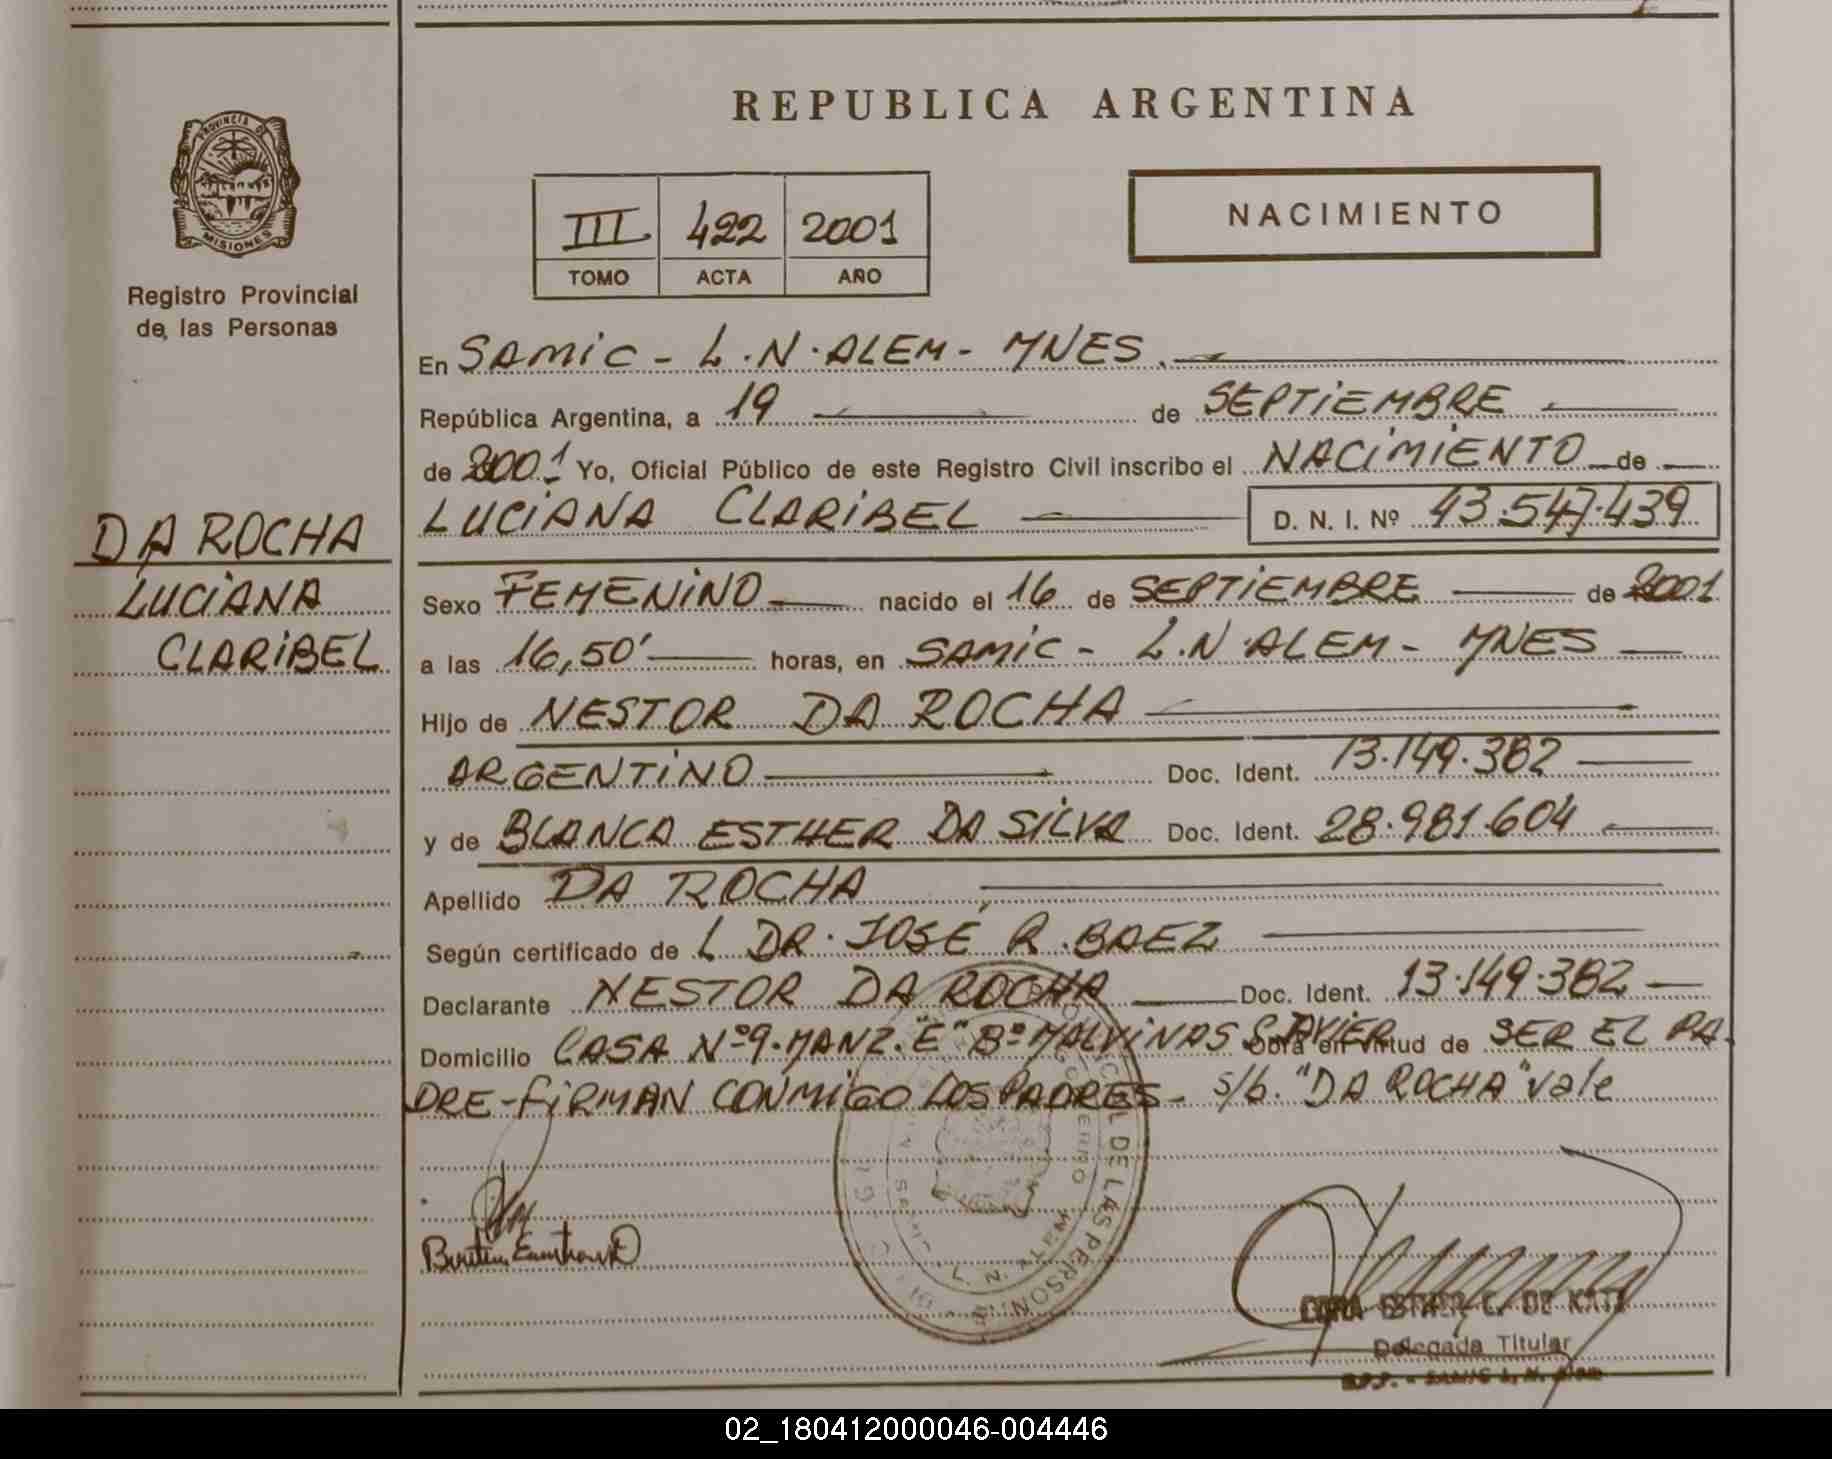 REPUBLICA ARGENTINA
PROVINCIA DE
MISIONES
Registro Provincial
de las Personas
III 422 2001
TOMO ACTA AÑO
NACIMIENTO
DA ROCHA
LUCIANA
CLARIBEL
En SAMIC - L.N.ALEM - MNES.
República Argentina, a 19 de SEPTIEMBRE
de 2001 Yo, Oficial Público de este Registro Civil inscribo el NACIMIENTO de
LUCIANA CLARIBEL D. N. I. Nº 43.547.439
Sexo FEMENINO nacido el 16 de SEPTIEMBRE de 2001
a las 16,50' horas, en SAMIC - L.N.ALEM - MNES
Hijo de NESTOR DA ROCHA
ARGENTINO Doc. Ident. 13.149.382
y de BLANCA ESTHER DA SILVA Doc. Ident. 28.981.604
Apellido DA ROCHA
Según certificado de L DR. JOSÉ R. BAEZ
Declarante NESTOR DA ROCHA Doc. Ident. 13.149.382
Domicilio CASA Nº9.MANZ."E" Bº MALVINAS S.JAVIER Obra en virtud de SER EL PA-
DRE-FIRMAN CONMIGO LOS PADRES- s/b. "DA ROCHA" vale
DE LAS PERSON
L. N. ALEM
DE KATZ
Delegada Titular
R.P.P. - SAMIC L. N. Alem
02_180412000046-004446